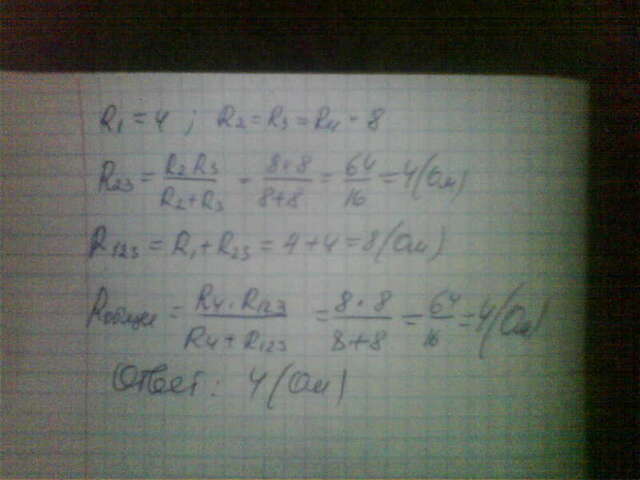 R₁ = 4 ; R₂ = R₃ = R₄ = 8
R₂₃ = R₂R₃ / R₂+R₃ = 8*8 / 8+8 = 64 / 16 = 4 (Ом)
R₁₂₃ = R₁ + R₂₃ = 4 + 4 = 8 (Ом)
Rобщее = R₄·R₁₂₃ / R₄+R₁₂₃ = 8·8 / 8+8 = 64 / 16 = 4 (Ом)
Ответ: 4 (Ом)